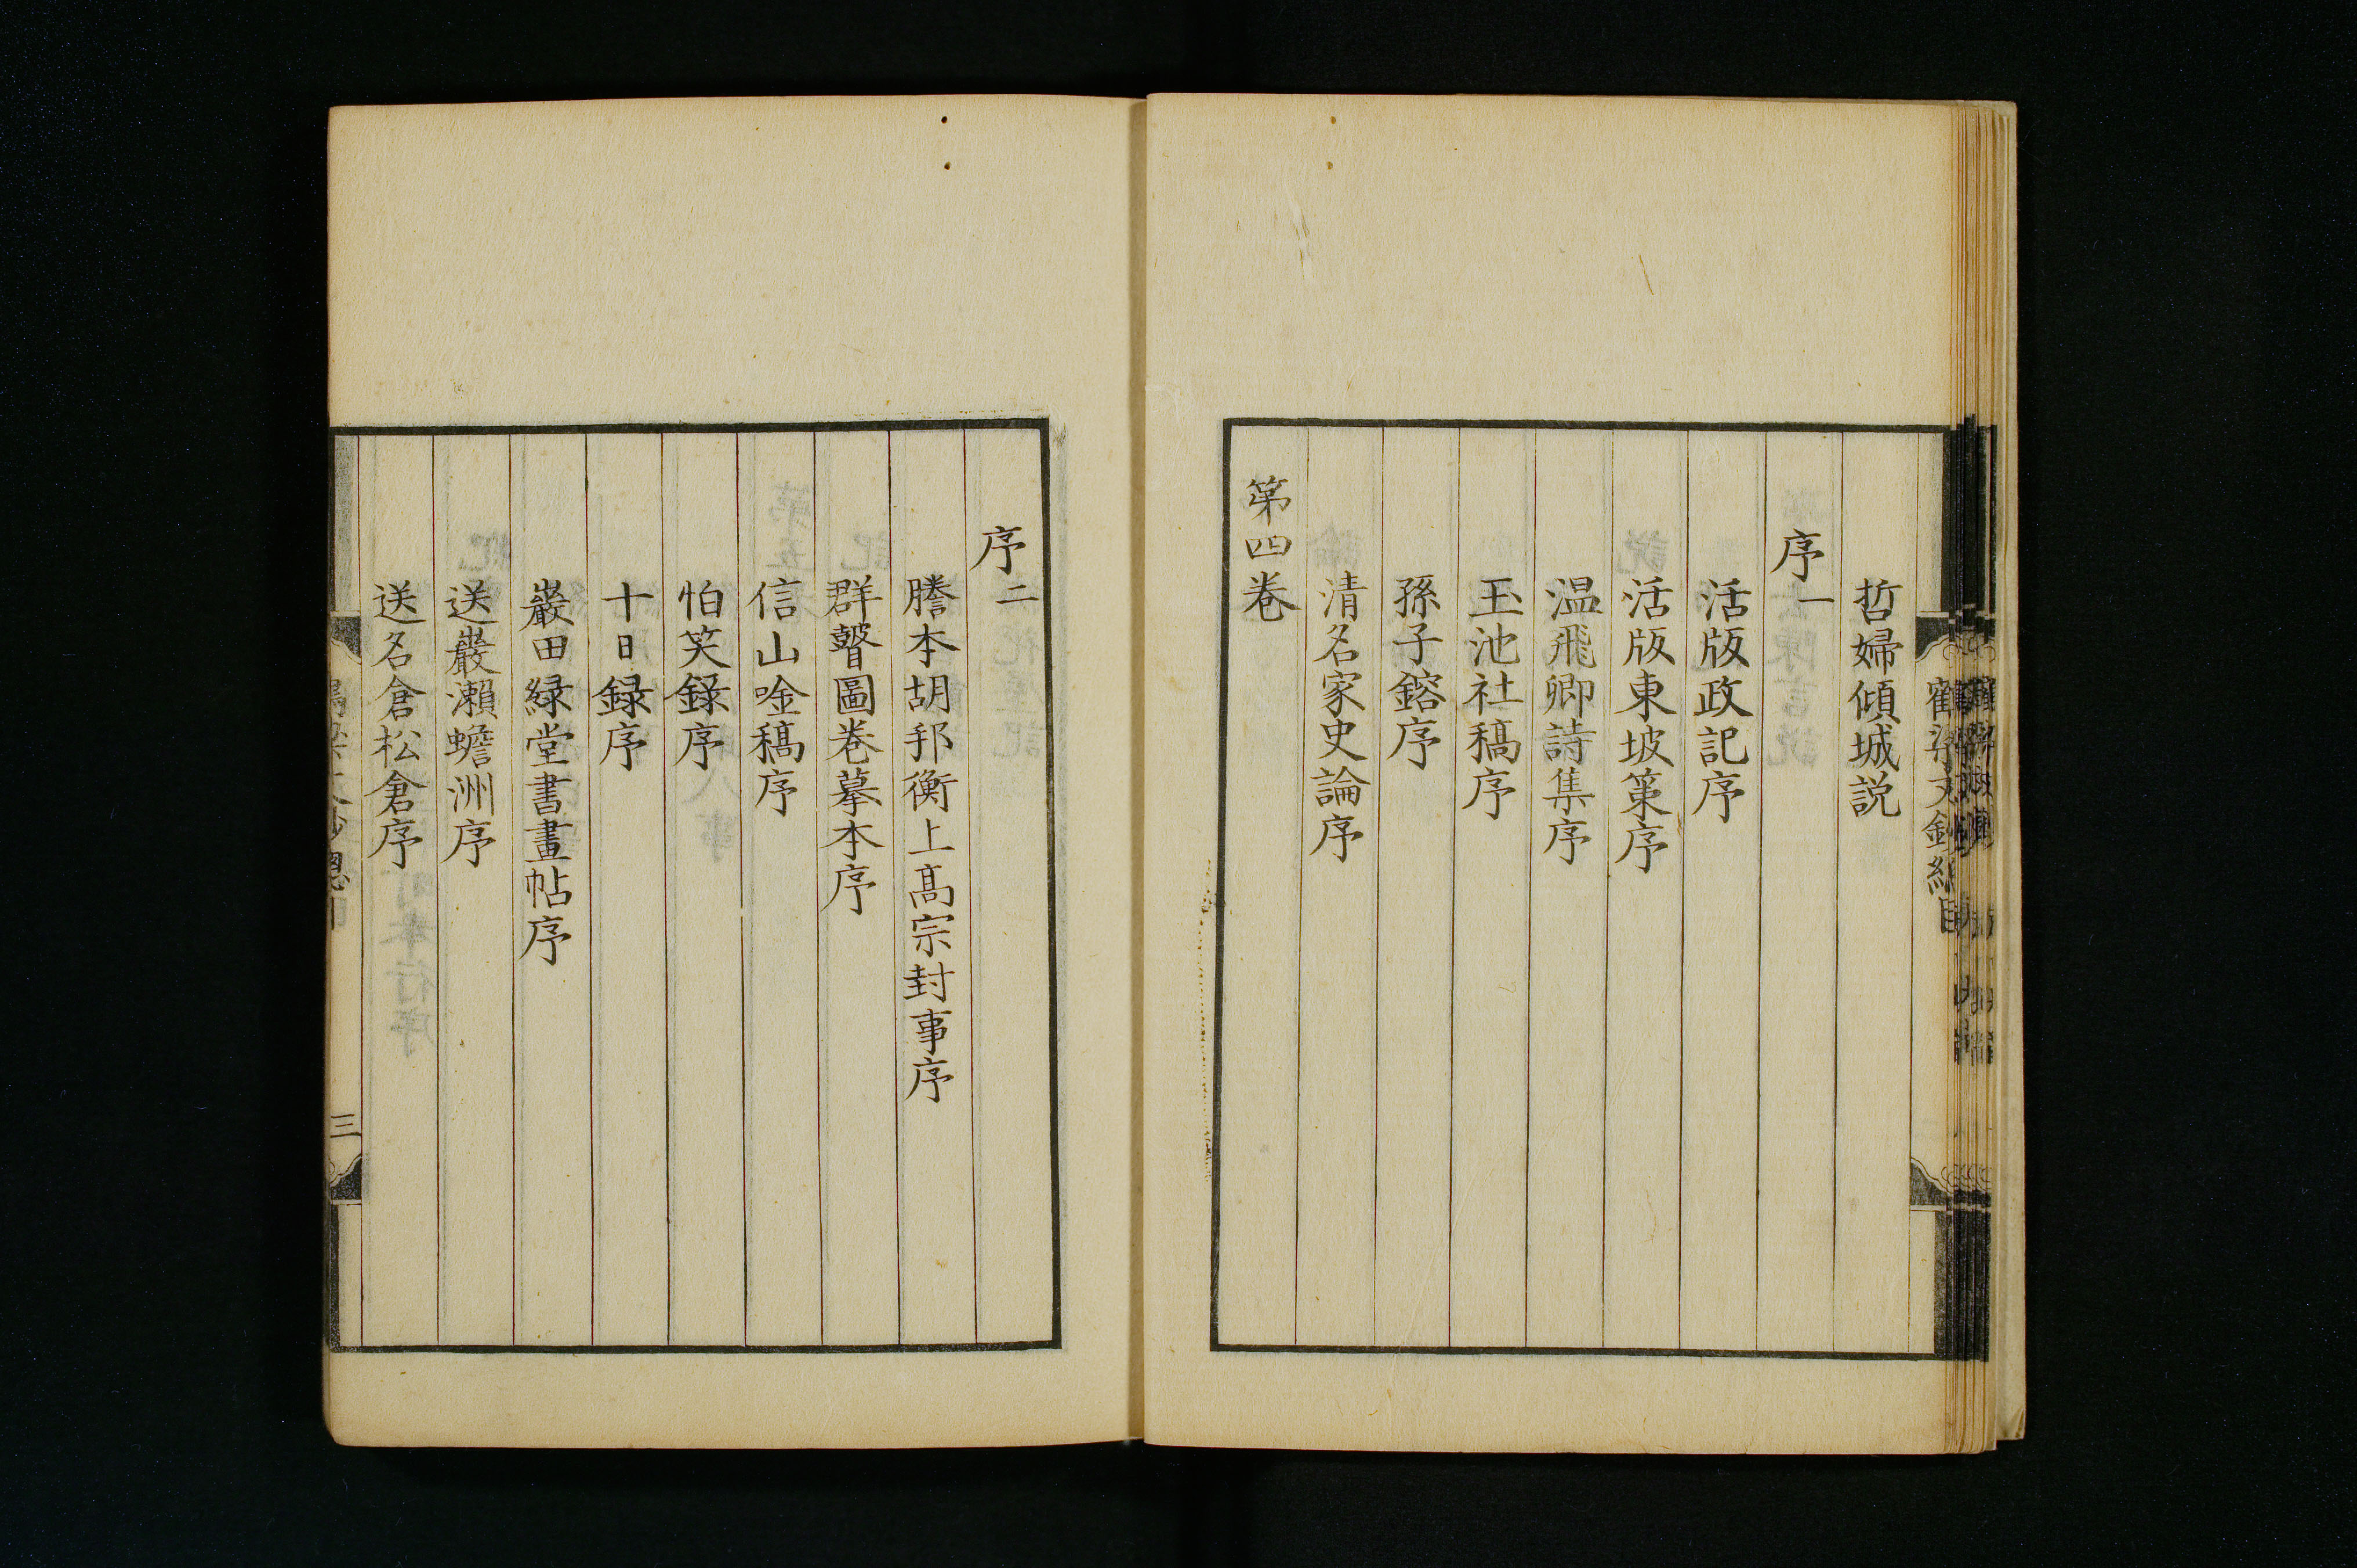 哲婦傾城説
序一
活版政記序
活版東坡策序
温飛卿詩集序
玉池社稿序
孫子鎔序
清名家史論序
第四巻
序二
謄本胡邦衡上髙宗封事序
群瞽圖巻摹本序
信山唫稿序
怕笑録序
十日録序
巖田緑堂書畫帖序
送巖瀬蟾洲序
送名倉松倉序
三